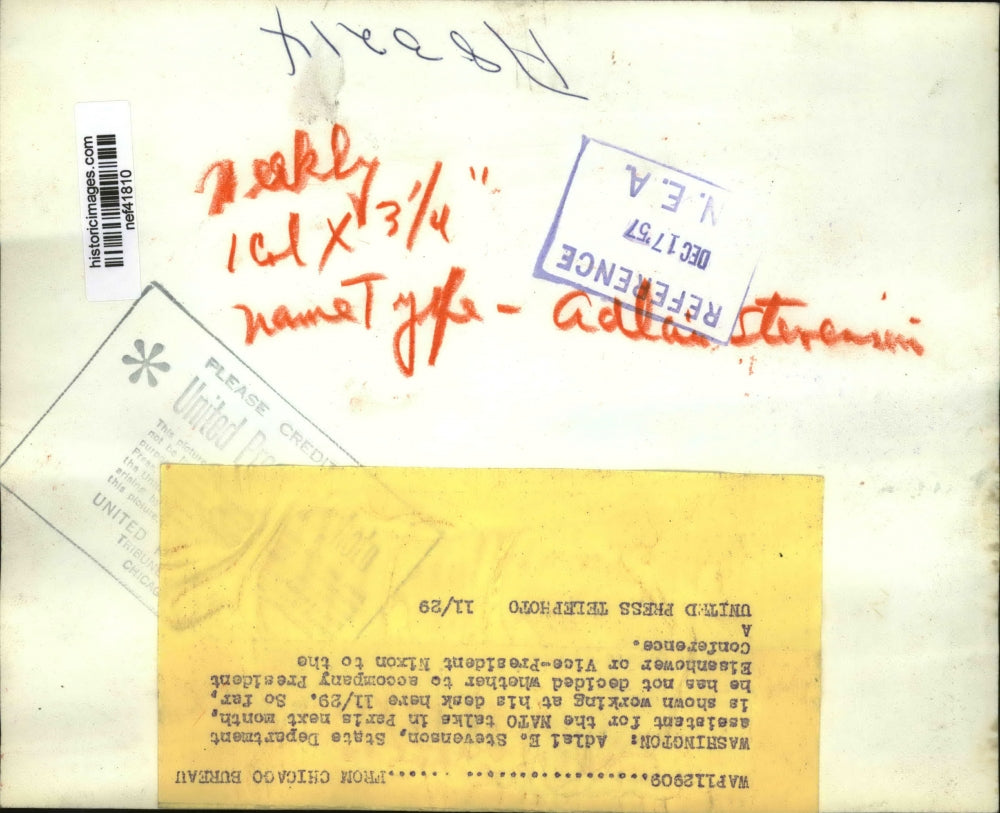 A8321t
historicimages.com
nef41810
Weekly
1 Col X 3 1/4"
name Type - Adlai Stevenson
REFERENCE
DEC 17 '57
N. E. A
PLEASE CREDIT
United
This picture
not be
the
this picture
UNITED
TRIBUN
CHICAG
WAP112909...................FROM CHICAGO BUREAU
WASHINGTON: Adlai E. Stevenson, State Department
assistant for the NATO talks in Paris next month,
is shown working at his desk here 11/29. So far,
he has not decided whether to accompany President
Eisenhower or Vice-President Nixon to the
Conference.
A
UNITED PRESS TELEPHOTO 11/29